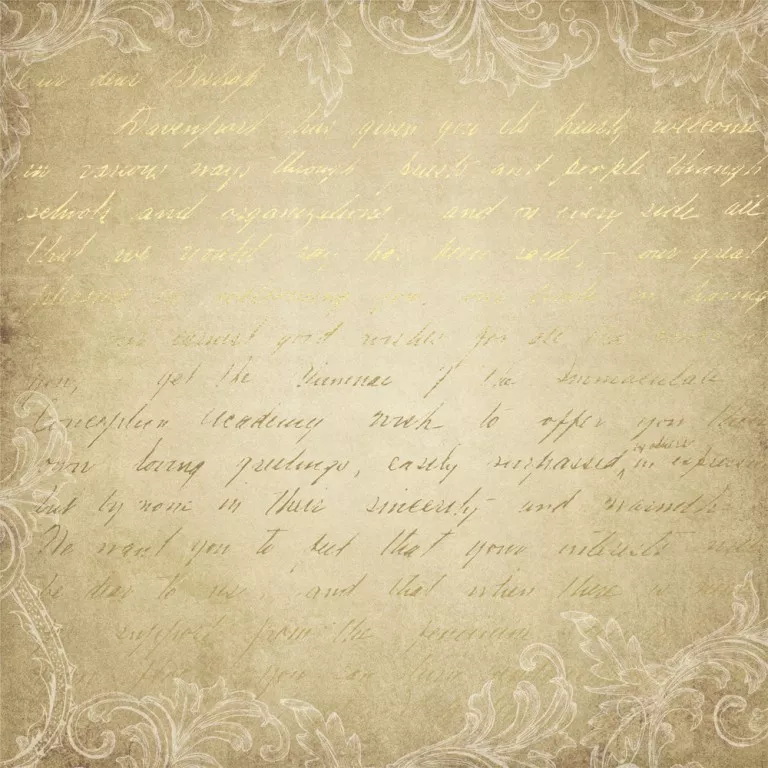 Our dear Bishop
Davenport has given you its hearty welcome
in various ways through priests and people through
schools and organizations, and on every side all
that we would say has been said, – our great
pleasure in welcoming you, our in having
our earnest good wishes for all
you, yet the of the Immaculate
Conception Academy wish to offer you their
own loving greetings, easily surpassed by others in expression
but by none in their sincerity and warmth.
We want you to feel that your interests will
be dear to us, and that when there is
support from the
you can